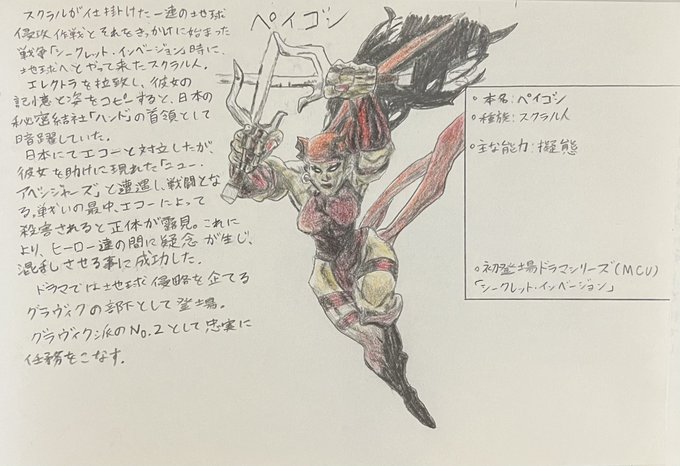 ペイゴン
スクラルが仕掛けた一連の地球
侵攻作戦とそれをきっかけに始まった
戦争「シークレット・インベージョン」時に、
地球へとやって来たスクラル人。
エレクトラを拉致し、彼女の
記憶と姿をコピーすると、日本の
秘密結社「ハンド」の首領として
暗躍していた。
日本にてエコーと対立したが、
彼女を助けに現れた「ニュー・
アベンジャーズ」と遭遇し、戦闘とな
る。戦いの最中、エコーによって
殺害されると正体が露見。これに
より、ヒーロー達の間に疑念が生じ、
混乱させる事に成功した。
ドラマでは地球侵略を企てる
グラヴィクの部下として登場。
グラヴィク派のNo.2として忠実に
任務をこなす。
○本名:ペイゴン
○種族:スクラル人
○主な能力:擬態
○初登場ドラマシリーズ(MCU)
「シークレット・インベージョン」